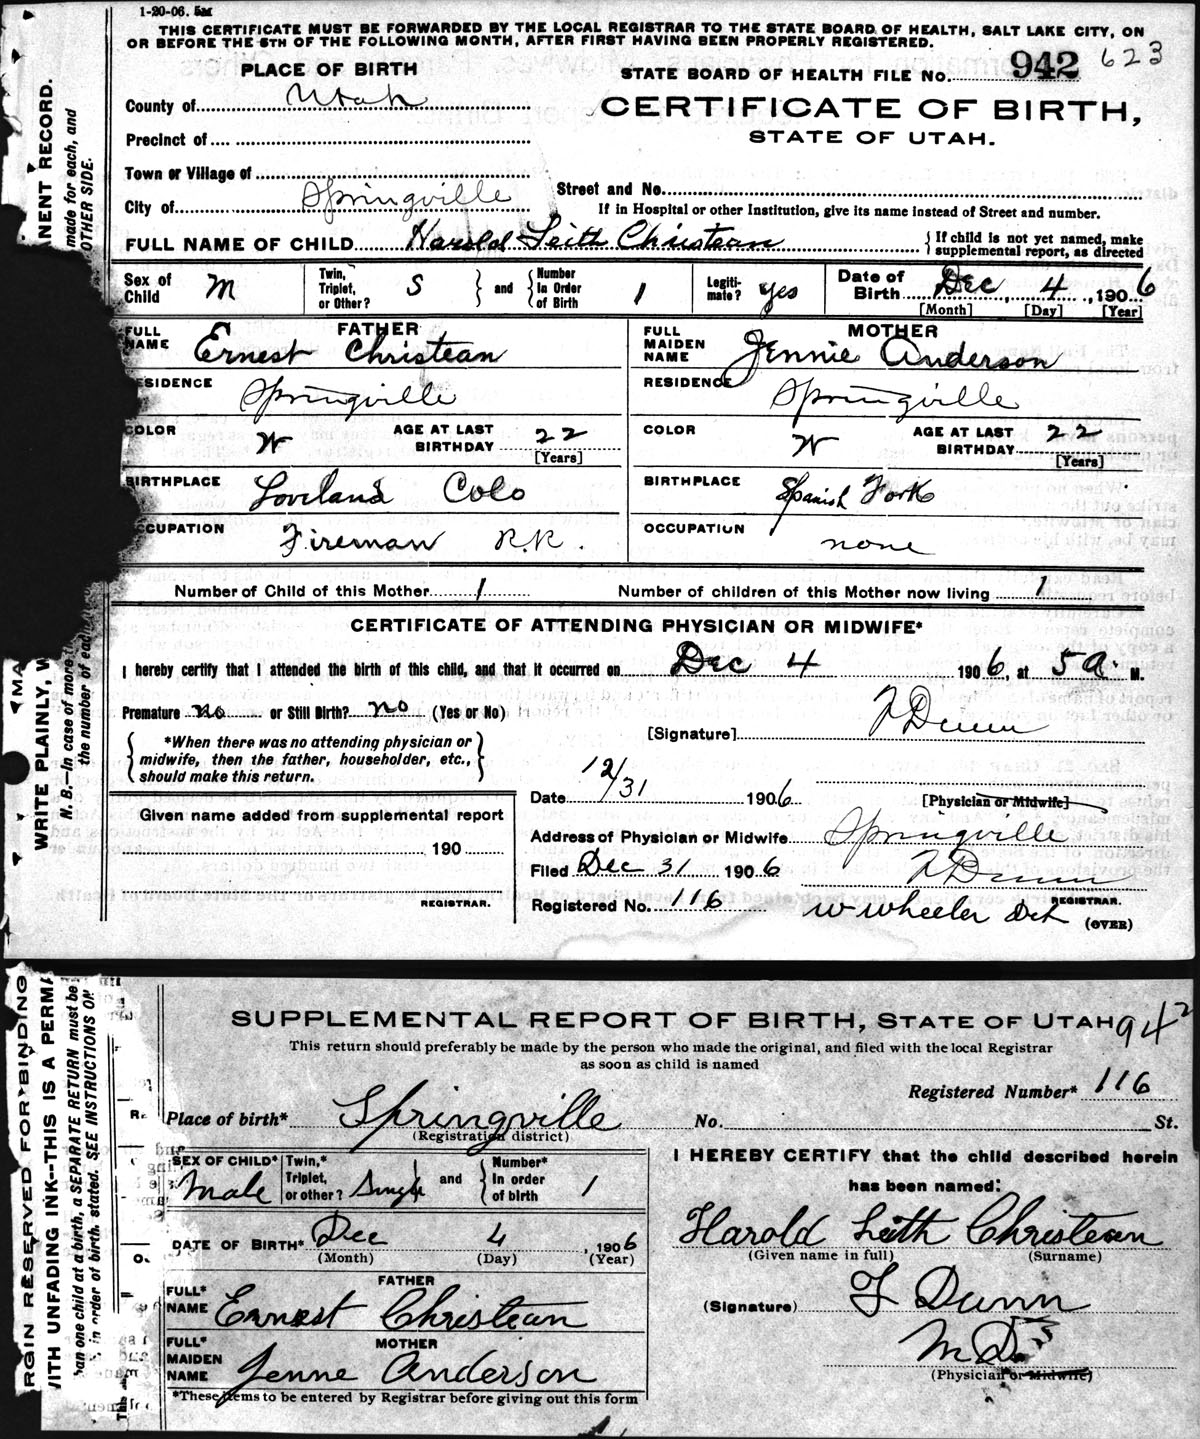 1-20-06. 5M
THIS CERTIFICATE MUST BE FORWARDED BY THE LOCAL REGISTRAR TO THE STATE BOARD OF HEALTH, SALT LAKE CITY, ON
OR BEFORE THE 5TH OF THE FOLLOWING MONTH, AFTER FIRST HAVING BEEN PROPERLY REGISTERED.
PLACE OF BIRTH
STATE BOARD OF HEALTH FILE No. 942 623
County of Utah
CERTIFICATE OF BIRTH,
STATE OF UTAH.
Precinct of
Town or Village of
Street and No.
City of Springville
If in Hospital or other Institution, give its name instead of Street and number.
FULL NAME OF CHILD Harold Leith Christean
{ If child is not yet named, make supplemental report, as directed
Sex of Child M
Twin, Triplet, or Other? S } and { Number In Order of Birth 1
Legitimate? yes
Date of Birth Dec 4, 1906
[Month] [Day] [Year]
FATHER
FULL NAME Ernest Christean
RESIDENCE Springville
COLOR W AGE AT LAST BIRTHDAY 22
[Years]
BIRTHPLACE Loveland Colo
OCCUPATION Fireman R.R.
MOTHER
FULL MAIDEN NAME Jennie Anderson
RESIDENCE Springville
COLOR W AGE AT LAST BIRTHDAY 22
[Years]
BIRTHPLACE Spanish Fork
OCCUPATION none
Number of Child of this Mother 1 Number of children of this Mother now living 1
CERTIFICATE OF ATTENDING PHYSICIAN OR MIDWIFE*
I hereby certify that I attended the birth of this child, and that it occurred on Dec 4 1906, at 5 A. M.
Premature no or Still Birth? no (Yes or No)
[Signature] F Dunn
{ *When there was no attending physician or
midwife, then the father, householder, etc.,
should make this return. }
Date 12/31 1906
[Physician or Midwife]
Given name added from supplemental report
190
REGISTRAR.
Address of Physician or Midwife Springville
Filed Dec 31 1906 F Dunn
REGISTRAR.
Registered No. 116 W Wheeler Det
(OVER)
NENT RECORD.
made for each, and
OTHER SIDE.
WRITE PLAINLY, W
N. B.—In case of more
the number of each
SUPPLEMENTAL REPORT OF BIRTH, STATE OF UTAH 942
This return should preferably be made by the person who made the original, and filed with the local Registrar
as soon as child is named
Registered Number* 116
Place of birth* Springville No. St.
(Registration district)
SEX OF CHILD* Male
Twin,* Triplet, or other? Single } and { Number* In order of birth 1
DATE OF BIRTH* Dec 4, 1906
(Month) (Day) (Year)
FATHER
FULL* NAME Ernest Christean
MOTHER
FULL* MAIDEN NAME Jenne Anderson
*These items to be entered by Registrar before giving out this form
I HEREBY CERTIFY that the child described herein
has been named:
Harold Leith Christean
(Given name in full) (Surname)
(Signature) F Dunn
M D
(Physician or Midwife)
RGIN RESERVED FOR BINDING
WITH UNFADING INK--THIS IS A PERMA
han one child at a birth, a SEPARATE RETURN must be
in order of birth, stated. SEE INSTRUCTIONS ON